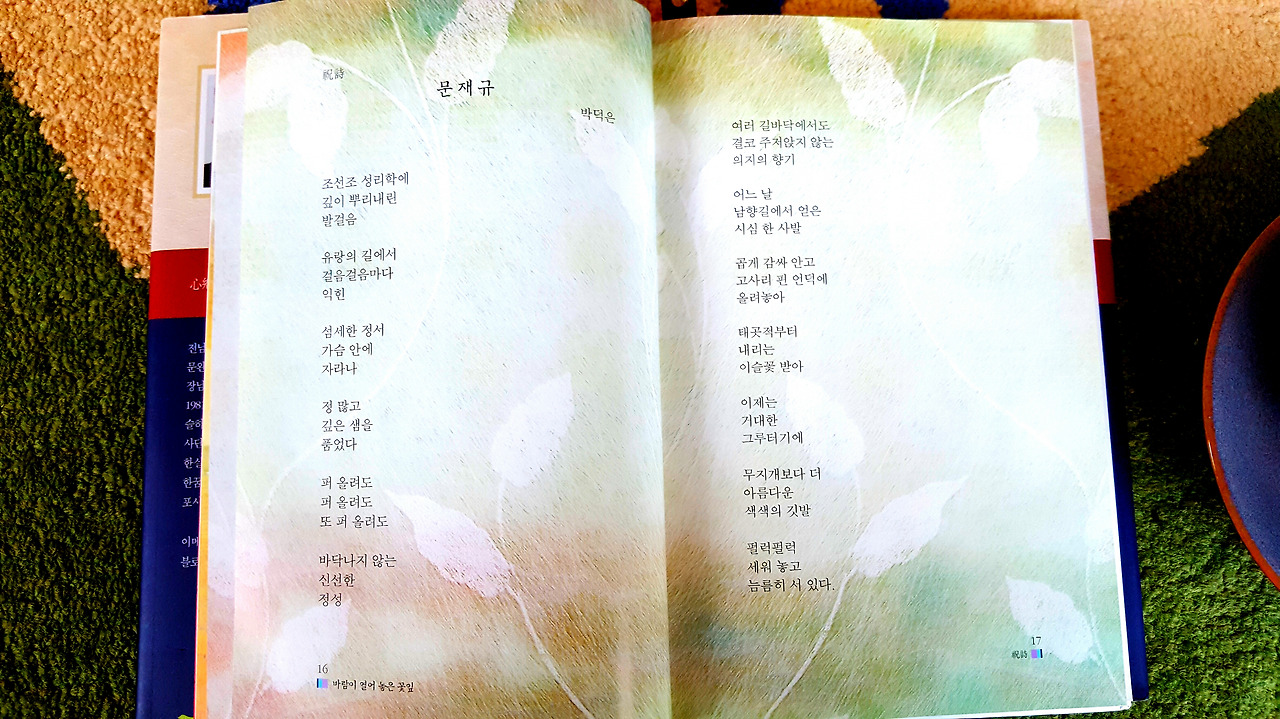 祝詩
문재규
박덕은
조선조 성리학에
깊이 뿌리내린
발걸음
유랑의 길에서
걸음걸음마다
익힌
섬세한 정서
가슴 안에
자라나
정 많고
깊은 샘을
품었다
퍼 올려도
퍼 올려도
또 퍼 올려도
바닥나지 않는
신선한
정성
16
바람이 열어 놓은 꽃길
여러 길바닥에서도
결코 주저앉지 않는
의지의 향기
어느 날
남향길에서 얻은
시심 한 사발
곱게 감싸 안고
고사리 핀 언덕에
올려놓아
태곳적부터
내리는
이슬꽃 받아
이제는
거대한
그루터기에
무지개보다 더
아름다운
색색의 깃발
펄럭펄럭
세워 놓고
늠름히 서 있다.
17
祝詩
전남
문완
장남
198
슬하
사단
한실
한꿈
포시
이메
블로